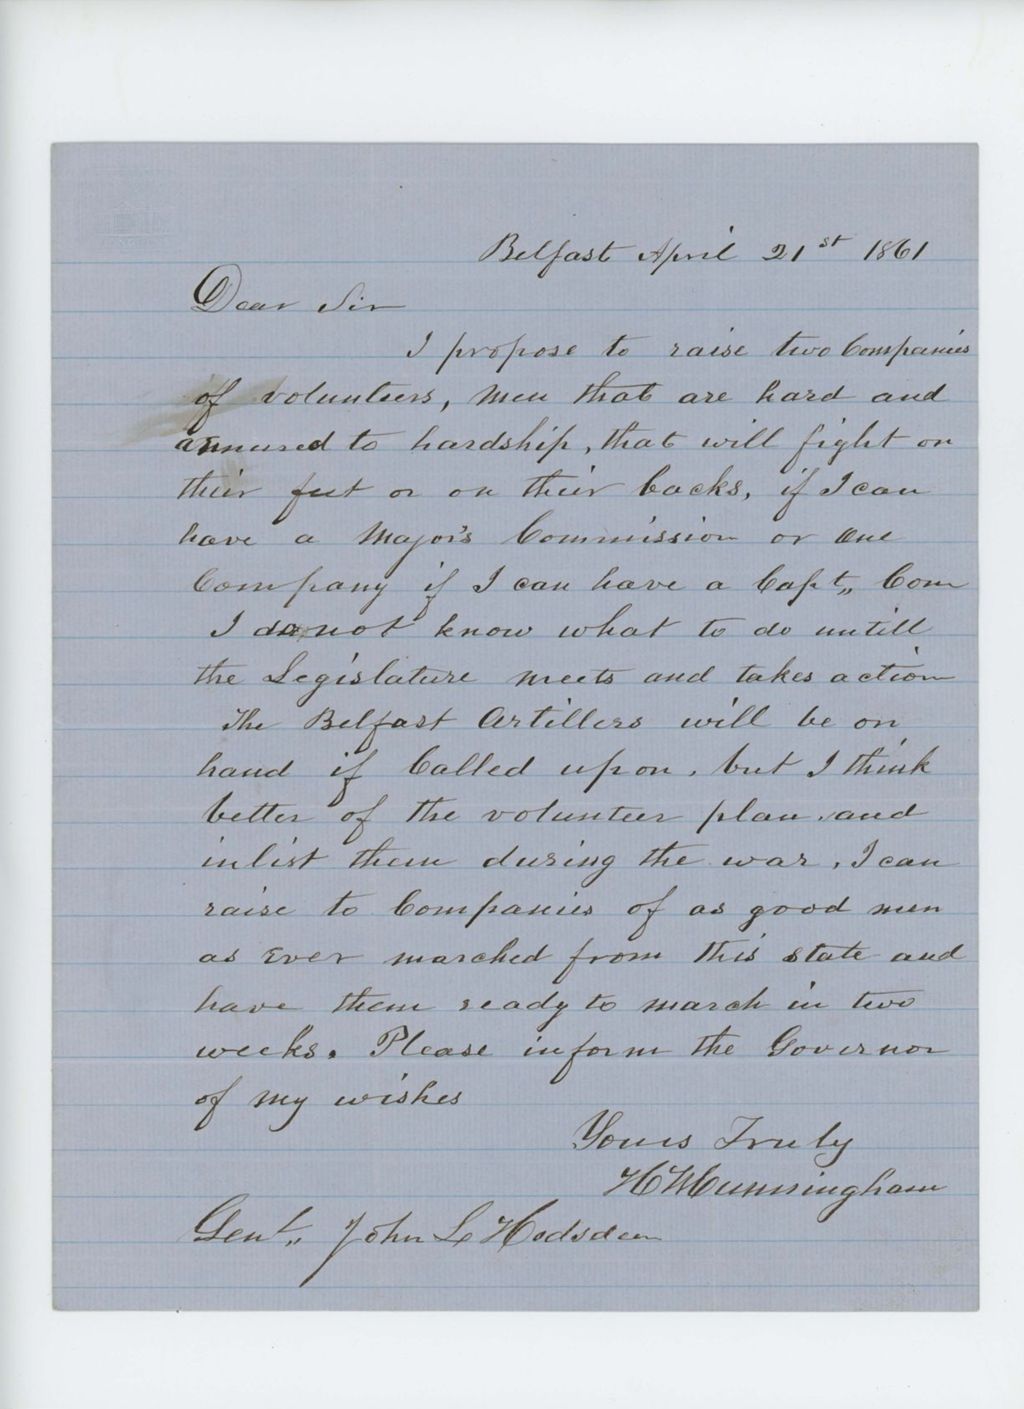 Belfast April 21st 1861
Dear Sir
I propose to raise two Companies
of volunteers, men that are hard and
annured to hardship, that will fight on
their feet or on their backs, if I can
have a Major's Commission or One
Company if I can have a Capt,, Com
I do not know what to do untill
the Legislature meets and takes action
The Belfast Artillers will be on
hand if Called upon, but I think
better of the volunteer plan, and
inlist them during the war, I can
raise to Companies of as good men
as Ever marched from this state and
have them ready to march in two
weeks. Please inform the Governor
of my wishes
Yours Truly
H M Cunningham
Genl,, John L Hodsden